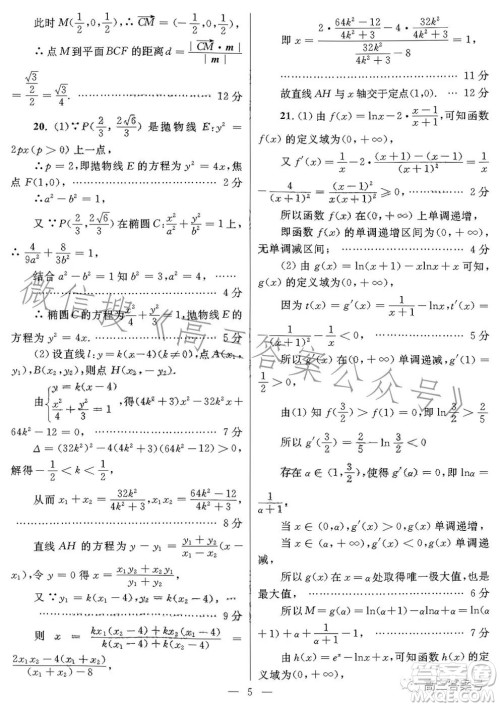 此时 M(1/2,0,1/2), CM→=(1/2,0,1/2),
∴点 M 到平面 BCF 的距离 d = |CM→·m| / |m|
= (√3/2)/2 = √3/4. ………… 12 分
20. (1)∵P(2/3, 2√6/3) 是抛物线 E: y² =
2px(p>0) 上一点,
∴p=2,即抛物线 E 的方程为 y²=4x,焦
点 F(1,0), ………… 2 分
∴a²-b²=1.
又∵P(2/3, 2√6/3) 在椭圆 C: x²/a² + y²/b² = 1 上,
∴ 4/(9a²) + 8/(3b²) = 1,
结合 a²-b²=1 知 a²=4,b²=3,
………… 4 分
∴椭圆 C 的方程为 x²/4 + y²/3 = 1,抛物线 E
的方程为 y²=4x. ………… 5 分
(2)设直线 l: y=k(x-4)(k≠0),点 A(x₁,
y₁),B(x₂,y₂),则点 H(x₂,-y₂).
由 { y=k(x-4), x²/4 + y²/3 = 1, 得 (4k²+3)x²-32k²x+
64k²-12=0, ………… 7 分
Δ=(32k²)²-4(4k²+3)(64k²-12)>0,
解得 -1/2<k<1/2,
从而 x₁+x₂ = 32k²/(4k²+3), x₁x₂ = (64k²-12)/(4k²+3).
………… 8 分
直线 AH 的方程为 y-y₁ = (y₁+y₂)/(x₁-x₂) (x-
x₁),令 y=0 得 x = (x₁y₂+x₂y₁)/(y₁+y₂),
又∵y₁=k(x₁-4),y₂=k(x₂-4),
………… 9 分
则 x = [kx₁(x₂-4)+kx₂(x₁-4)] / [k(x₁-4)+k(x₂-4)] =
[2x₁x₂-4(x₁+x₂)] / [x₁+x₂-8],
即 x = [2·(64k²-12)/(4k²+3) - 4·32k²/(4k²+3)] / [32k²/(4k²+3) - 8] = 1,
………… 11 分
故直线 AH 与 x 轴交于定点(1,0). … 12 分
21. (1)由 f(x)=lnx-2·(x-1)/(x+1),可知函数
f(x)的定义域为(0,+∞),
又 f′(x) = 1/x - 2·[(x+1)-(x-1)]/(x+1)² = 1/x
- 4/(x+1)² = (x-1)²/[x(x+1)²] ≥0, ………… 2 分
所以函数 f(x)在(0,+∞)上单调递增,
即函数 f(x)的单调递增区间为(0,+∞),
无单调减区间; ………… 4 分
(2)由 g(x)=ln(x+1)-xlnx+x,可知函
数 g(x)的定义域为(0,+∞),
因为 t(x)=g′(x) = 1/(x+1) - lnx,t′(x)=
-1/(x+1)² - 1/x <0, ………… 5 分
所以 g′(x)在(0,+∞)单调递减,g′(1)=
1/2>0,
由(1)知 f(3/2)>f(1)=0,即 ln 3/2 > 2/5,
所以 g′(3/2) = 2/5 - ln 3/2 <0,
存在 α∈(1, 3/2),使得 g′(α)=0,即 lnα=
1/(α+1),
当 x∈(0,α),g′(x)>0,g(x)单调递增;
当 x∈(α,+∞),g′(x)<0,g(x)单调
递减,
所以 g(α)是函数 g(x)的唯一极大值,也
是最大值, ………… 6 分
所以 M=g(α)=ln(α+1)-αlnα+α,
………… 7 分
由 h(x)=eˣ-xlnx,可知函数 h(x)的定义
域为(0,+∞),
— 5 —
微信搜《高三答案公众号》
高三答案号